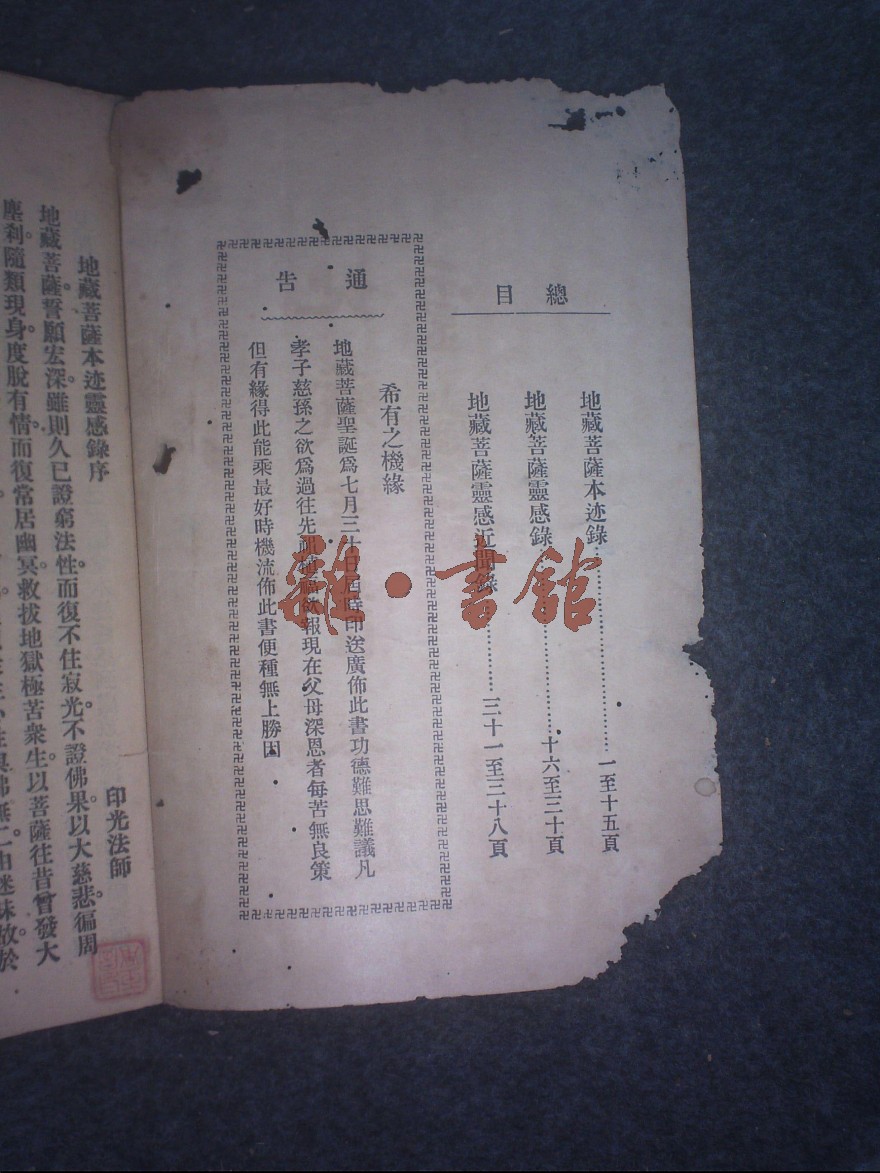 總目
地藏菩薩本迹錄……一至十五頁
地藏菩薩靈感錄……十六至三十頁
地藏菩薩靈感近聞錄……三十一至三十八頁
通告
希有之機緣
地藏菩薩聖誕爲七月三十日屆時印送廣佈此書功德難思難議凡
孝子慈孫之欲爲過往先祖植福欲報現在父母深恩者每苦無良策
但有緣得此能乘最好時機流佈此書便種無上勝因
地藏菩薩本迹靈感錄序
印光法師
地藏菩薩。誓願宏深。雖則久已證窮法性。而復不住寂光。不證佛果。以大慈悲。徧周
塵剎。隨類現身。度脫有情。而復常居幽冥。救拔地獄極苦衆生。以菩薩往昔曾發大
雜·書館